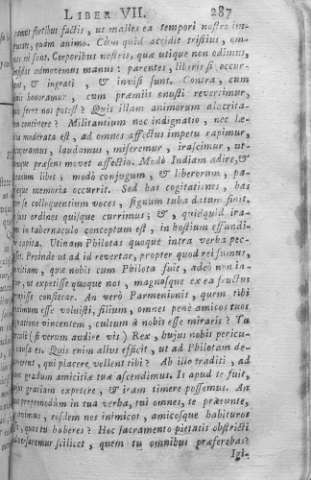 LIBER VII. 287
fortibus factis, ut malles ea tempori nostro im-
quàm animo. Cùm quid accidit tristius, om-
rei sunt. Corporibus nostris, quæ utique non odimus,
admovemus manus: parentes, liberis si occur-
& ingrati, & invisi sunt. Contra, cum
honoramur, cum præmiis onusti revertimur,
ferre nos potest? Quis illam animorum alacrita-
continere? Militantium nec indignatio, nec læ-
moderata est, ad omnes affectus impetu rapimur,
laudamus, miseremur, irascimur, ut-
præsens movet affectio. Modò Indiam adire, &
libet; modò conjugum, & liberorum, pa-
memoria occurrit. Sed has cogitationes, has
se colloquentium voces, signum tuba datum finit.
ordines quisque currimus; &, quicquid ira-
in tabernaculo conceptum est, in hostium effundi-
capita. Utinam Philotas quoque intra verba pec-
Proinde ut ad id revertar, propter quod rei sumus,
quæ nobis cum Philota fuit, adeò non in-
ut expetisse quoque nos, magnosque ex ea fructus
confitear. An verò Parmenionis, quem tibi
esse voluisti, filium, omnes penè amicos tuos
vincentem, cultum à nobis esse miraris? Tu
(si verum audire vis) Rex, hujus nobis pericu-
es. Quis enim alius effecit, ut ad Philotam de-
qui placere vellent tibi? Ab illo traditi, ad
gradum amicitiæ tuæ ascendimus. Is apud te fuit,
gratiam expetere, & iram timere possemus. An
in tua verba, tui omnes, te præeunte,
eosdem nos inimicos, amicosque habituros
quos tu haberes? Hoc sacramento pietatis obstricti
scilicet, quem tu omnibus præferebas?
Igi-